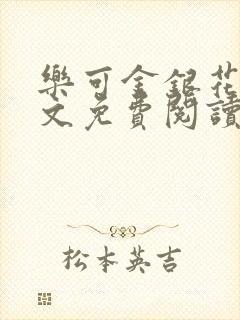 樂可金銀花
文免費閱讀
松本英吉